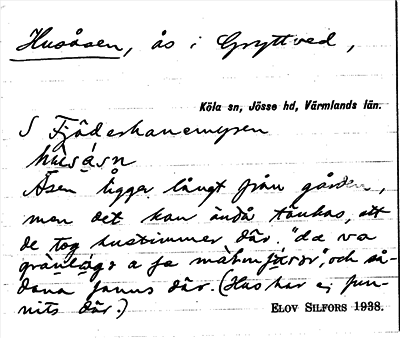 Husåsen, ås i Gryttved,
Köla sn, Jösse hd, Värmlands län.
S Fjäderhanemyren
hùsásn
Åsen ligger långt från gården,
men det kan ändå tänkas, att
de tog hustimmer där. "dä va
a fa
", och så-
dana fanns där. (Hus har ej fun-
nits där.)
ELOV SILFORS 1938.